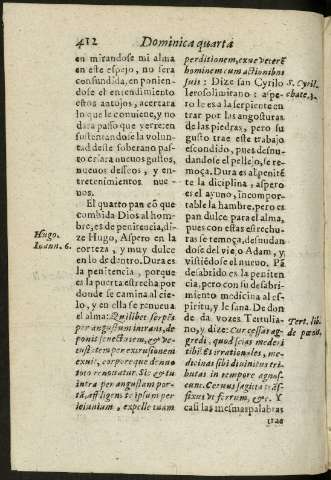 412 Dominica quarta
en mirandose mi alma
en este espejo, no sera
confundida, en ponien-
dose el entendimiento
estos antojos, acertara
lo que le conviene, y no
dara passo que yerre: en
sustentandose la volun-
tad deste soberano pas-
to criara nueuos gustos,
nueuos desseos, y en-
tretenimientos nue-
uos.
El quarto pan cõ que
combida Dios al hom-
bre, es de penitencia, di-
ze Hugo, Aspero en la
corteza, y muy dulce
en lo de dentro. Dura es
la penitencia, porque
es la puerta estrecha por
donde se camina al cie-
lo, y en ella se renueua
el alma: Quilibet serpẽs
per angustum intrans, de-
ponit senectorem, & ve-
tustatem per exrusionem
exuit, corpore que denuo
toto renouatur. Sic & tu
intra per angustam por-
tã, affligens te ipsum per
ieiunium, expelle tuam
Hugo.
Ioann. 6.
perditionem, exue veterẽ
hominem cum actionibus
suis: Dize san Cyrilo
Ierosolimitano: aspe-
ro le es a la serpiente en
trar por las angosturas
de las piedras, pero su
gusto trae este trabajo
escondido, pues desnu-
dandose el pellejo, se re-
moça. Dura es al penitẽ
te la diciplina, aspero
es el ayuno, incompor-
table la hambre, pero es
pan dulce para el alma,
pues con estas estrechu-
ras se remoça, desnudan
dose del viejo Adam, y
vistiẽdose el nueuo. Pã
desabrido es la peniten
cia, pero con su desabri-
miento medicina al es-
piritu, y le sana. De don
de da vozes Tertulia-
no, y dize: Cur cessas ag-
gredi, quod scias mederi
tibi? Et irrationales, me-
dicinas sibi diuinitus tri-
butas in tempore agnos-
cunt. Ceruus sagitta trãs-
fixus vt ferrum, &c. Y
casi las mesmas palabras
S. Cyril.
cathe. 2.
Tert. lib.
de pœnit.
trae